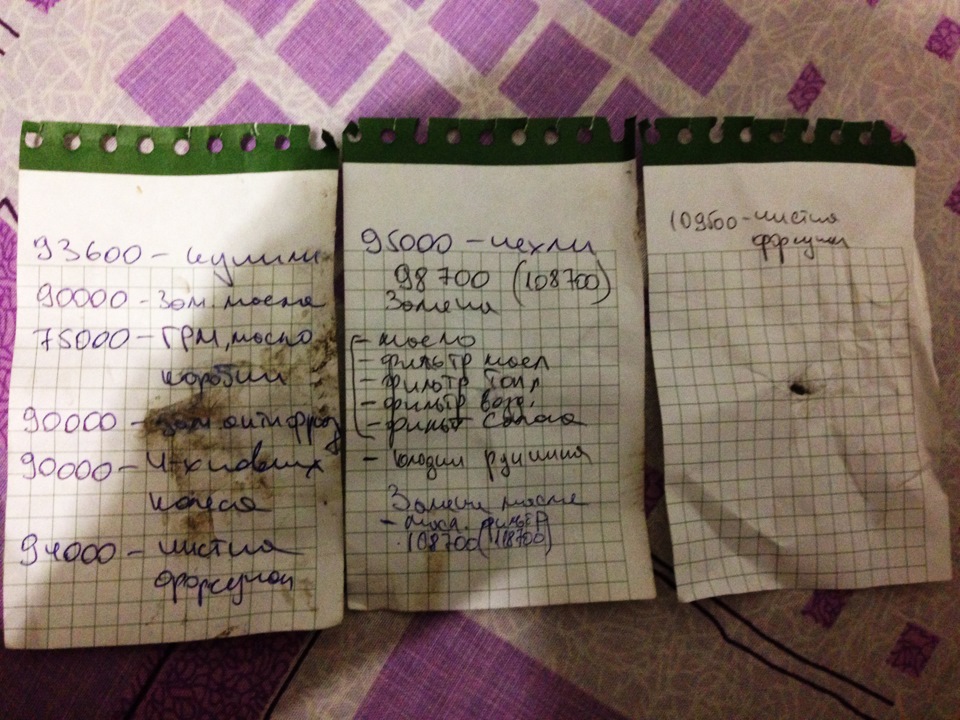 93600 - купили
90000 - Зам. масла
75000 - ГРМ, масло
коробки
90000 - зам. антифриз
90000 - 4-х новых
колеса
94000 - чистка
форсунок
95000 - чехлы
98700 (108700)
Замена
- масло
- фильтр масл
- фильтр топл
- фильтр возд.
- фильт салона
- колодки
Замена масла
- масл. фильтр
108700 (118700)
109500 - чистка
форсунок